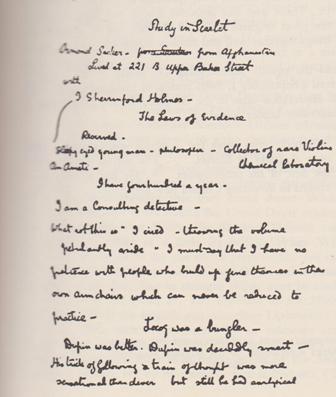 Study in Scarlet
Ormond Sacker - from Soudan from Afghanistan
Lived at 221 B Upper Baker Street
with
I Sherrinford Holmes -
The Laws of Evidence
Reserved -
Sleepy eyed young man - philosopher - Collector of rare Violins
An Amati - Chemical laboratory
I have four hundred a year -
I am a Consulting detective -
What rot this is" I cried - throwing the volume
petulantly aside " I must say that I have no
patience with people who build up fine theories in their
own armchairs which can never be reduced to
practice -
Lecoq was a bungler -
Dupin was better. Dupin was decidedly smart -
His trick of following a train of thought was more
sensational than clever but still he had analytical